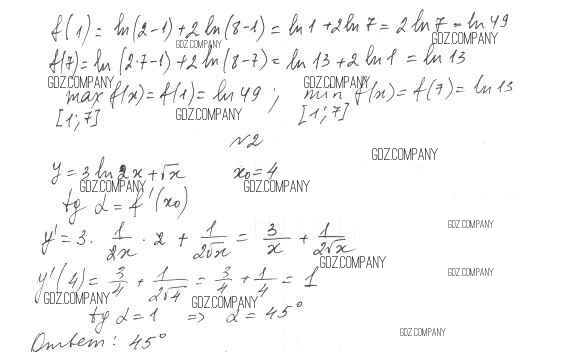 f(1) = ln(2-1)+2 ln(8-1) = ln 1 + 2 ln 7 = 2 ln 7 = ln 49
GDZ.COMPANY GDZ.COMPANY
f(7) = ln (2·7-1)+2 ln(8-7) = ln 13 + 2 ln 1 = ln 13
GDZ.COMPANY GDZ.COMPANY
max f(x) = f(1) = ln 49 ; min f(x) = f(7) = ln 13
[1;7] GDZ.COMPANY [1;7]
№2
GDZ.COMPANY
y = 3 ln 2x + √x x₀ = 4
GDZ.COMPANY GDZ.COMPANY
tg α = f'(x₀)
GDZ.COMPANY
y' = 3 · 1/2x · 2 + 1/2√x = 3/x + 1/2√x
GDZ.COMPANY
GDZ.COMPANY
y'(4) = 3/4 + 1/2√4 = 3/4 + 1/4 = 1
GDZ.COMPANY GDZ.COMPANY
tg α = 1 => α = 45°
GDZ.COMPANY
Ответ: 45°